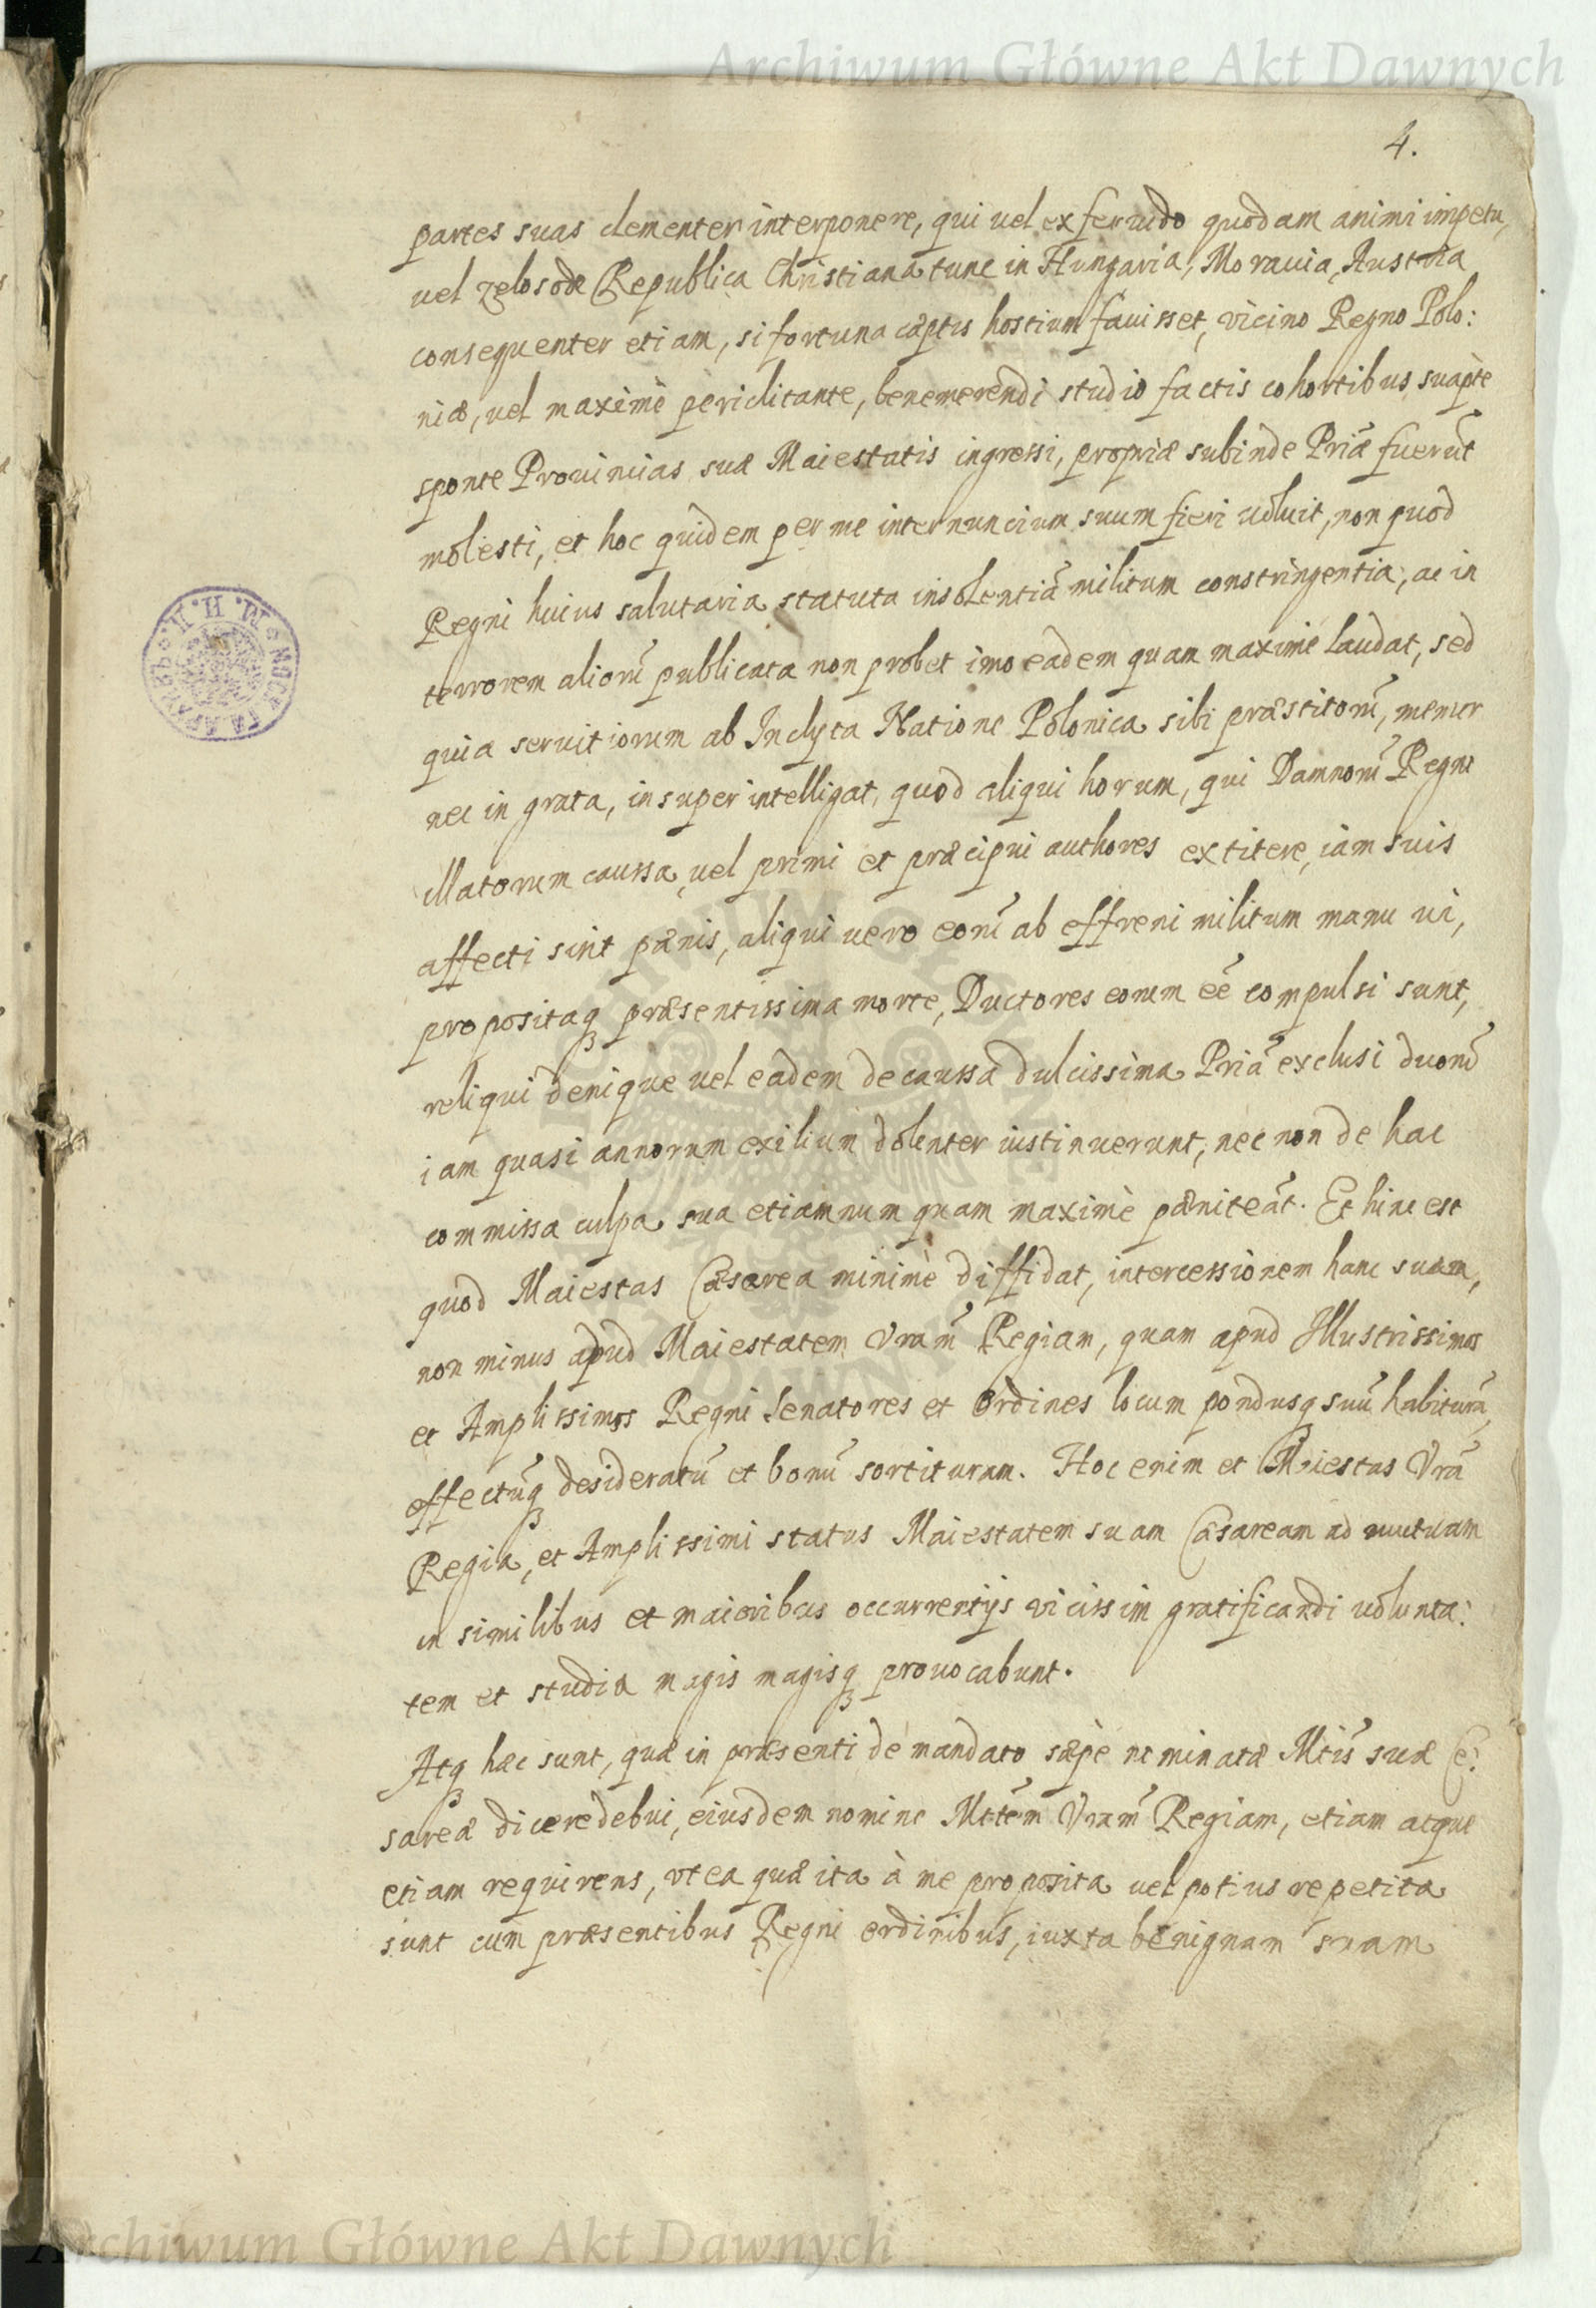 Archiwum Główne Akt Dawnych
4.
partes suas clementer interponere, qui uel ex feruido quodam animi impetu,
uel zelosode Republica Christiana tunc in Hungaria, Morauia, Austria
consequenter etiam, si fortuna cæptis hostium fauisset, vicino Regno Polo:
niæ, uel maximè periclitante, benemerendi studio factis cohortibus suapte
sponte Prouincias suæ Maiestatis ingressi, propriæ subinde Priæ̃ fuerũt
molesti, et hoc quidem per me internuncium suum fieri uoluit, non quod
Regni huius salutaria statuta insolentiã militum constringentia, ac in
terrorem aliorũ publicata non probet imo eadem quam maximè laudat, sed
quia seruitiorum ab Inclyta Natione Polonica sibi præstitorũ, memor
nec in grata, insuper intelligat, quod aliqui horum, qui Damnorũ Regni
illatorum caussa, uel primi et præcipui authores extitere, iam suis
affecti sint pænis, aliqui uero eorũ ab effreni militum manu ui,
propositaq præsentissima morte, Ductores eorum eē compulsi sunt,
reliqui denique uel eadem de caussa dulcissima Priã exclusi duorũ
iam quasi annorum exilium dolenter sustinuerunt, nec non de hac
commissa culpa sua etiamnum quam maximè pæniteãt. Et hinc est
quod Maiestas Cæsarea minimè diffidat, intercessionem hanc suam,
non minus apud Maiestatem Vram̃ Regiam, quam apud Illustrissimos
et Amplissimos Regni Senatores et Ordines locum pondusq suũ habiturã,
effectũq desideratũ et bonũ sortituram. Hoc enim et Maiestas Vrã
Regia, et Amplissimi status Maiestatem suam Cæsaream ad mutuam
in similibus et maioribus occurrentijs vicissim gratificandi uolunta:
tem et studia magis magisq prouocabunt.
Atq hæc sunt, quæ in præsenti de mandato sæpè nominatæ Mtis̃ suæ Cę:
sareæ dicere debui, eiusdem nomine Mttẽm Vram̃ Regiam, etiam atque
etiam requirens, vt ea quæ ita à me proposita uel potius repetita
sunt cum præsentibus Regni ordinibus, iuxta benignam suam
Archiwum Główne Akt Dawnych